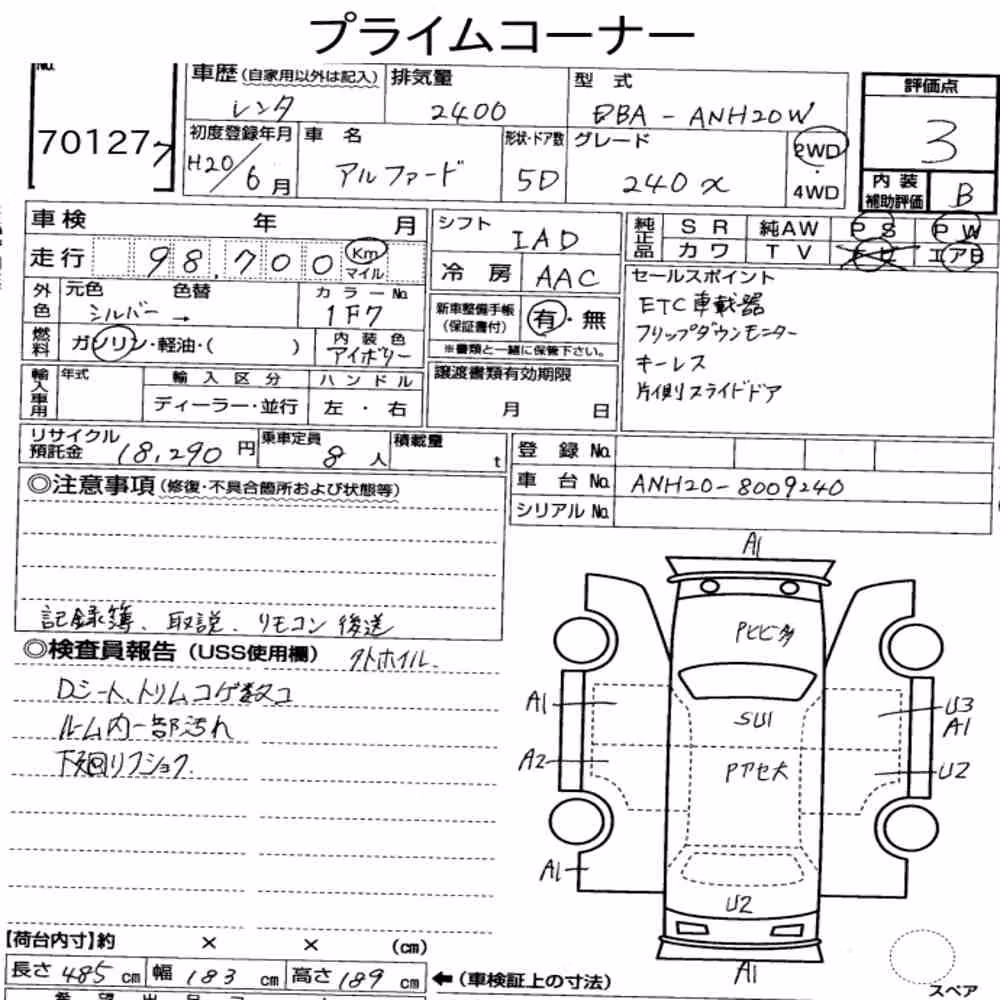 プライムコーナー
No.
70127
車歴(自家用以外は記入) 排気量 型 式 評価点
レンタ 2400 DBA - ANH20W 3
初度登録年月 車 名 形状・ドア数 グレード 2WD
H20/6月 アルファード 5D 240 X 4WD
内 装
補助評価 B
車検 年 月 シフト IAD 純正品 S R 純AW P S P W
走行 98,700 Km マイル カワ T V エアB
冷 房 AAC
外色 元色 色替 カラーNo.
シルバー → 1F7
新車整備手帳
(保証書付) 有・無
※書類と一緒に保管下さい。
セールスポイント
ETC車載器
フリップダウンモニター
キーレス
片側スライドドア
燃料 ガソリン・軽油・( ) 内 装 色
アイボリー
輸入車用 年式 輸 入 区 分 ハ ン ド ル
ディーラー・並行 左 ・ 右
譲渡書類有効期限
月 日
リサイクル
預託金 18,290 円 乗車定員 8 人 積載量 t
登 録 No.
車 台 No. ANH20-8009240
シリアル No.
◎注意事項(修復・不具合箇所および状態等)
記録簿、取説、リモコン後送
◎検査員報告(USS使用欄) 外ホイル.
Dシート、トリムコゲ数コ
ルーム内一部汚れ
下廻りフショク.
A1
Pヒビ多
A1 SU1 U3
A1
A2 Pアセ大 U2
A1
U2
A1
【荷台内寸】約 × × (cm)
長さ 485 cm 幅 183 cm 高さ 189 cm ←(車検証上の寸法)
スペア